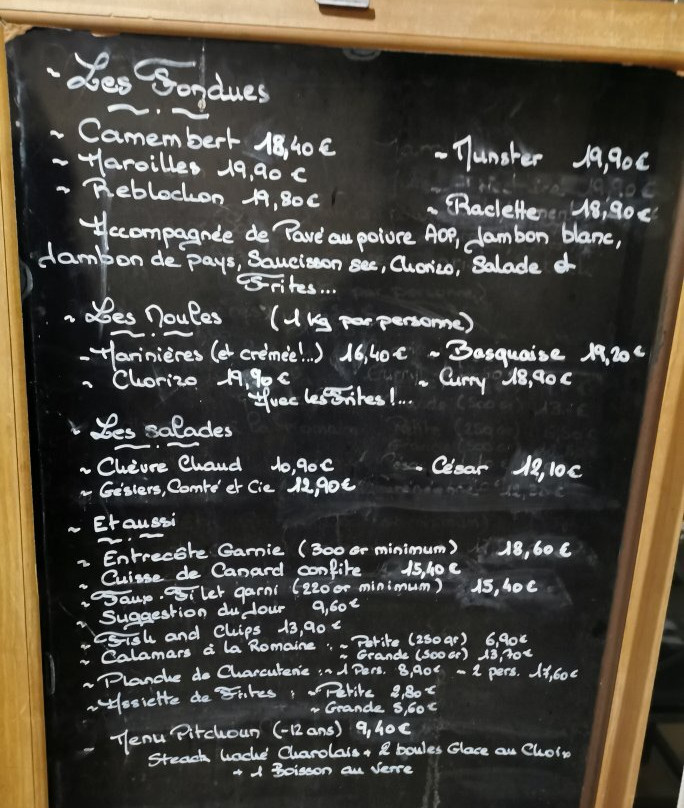 ~ Les Fondues
~ Camembert 18,40€ ~ Munster 19,90€
~ Maroilles 19,90€
~ Reblochon 19,80€ ~ Raclette 18,90€
Accompagnée de Pavé au poivre AOP, Jambon blanc,
Jambon de pays, Saucisson sec, Chorizo, Salade et
Frites...
~ Les Moules (1 Kg par personne)
~ Marinières (et crémée!...) 16,40€ ~ Basquaise 19,20€
~ Chorizo 19,90€ ~ Curry 18,90€
Avec les Frites!...
~ Les salades
~ Chèvre Chaud 10,90€ ~ César 12,10€
~ Gésiers, Comté et Cie 12,90€
~ Et aussi
~ Entrecôte Garnie (300 gr minimum) 18,60€
~ Cuisse de Canard confite 15,40€
~ Faux-Filet garni (220 gr minimum) 15,40€
~ Suggestion du Jour 9,60€
~ Fish and Chips 13,90€
~ Calamars à la Romaine : ~ Petite (250gr) 6,90€
~ Grande (500gr) 13,70€
~ Planche de Charcuterie : ~ 1 Pers. 8,90€ ~ 2 pers. 17,60€
~ Assiette de Frites : ~ Petite 2,80€
~ Grande 5,60€
~ Menu Pitchoun (-12 ans) 9,40€
Steack haché Charolais + 2 boules Glace au Choix
+ 1 Boisson au verre